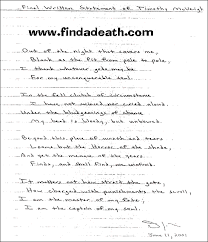 Final Written Statement of Timothy McVeigh
www.findadeath.com
Out of the night that covers me,
Black as the Pit from pole to pole,
I thank whatever gods may be
For my unconquerable soul.
In the fell clutch of circumstance
I have not winced nor cried aloud.
Under the bludgeonings of chance
My head is bloody, but unbowed.
Beyond this place of wrath and tears
Looms but the Horror of the shade,
And yet the menace of the years
Finds, and shall find, me unafraid.
It matters not how strait the gate,
How charged with punishments the scroll,
I am the master of my fate;
I am the captain of my soul.
June 11, 2001